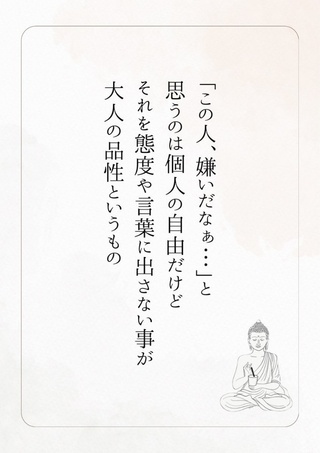 「この人、嫌いだなぁ…」と
思うのは個人の自由だけど
それを態度や言葉に出さない事が
大人の品性というもの